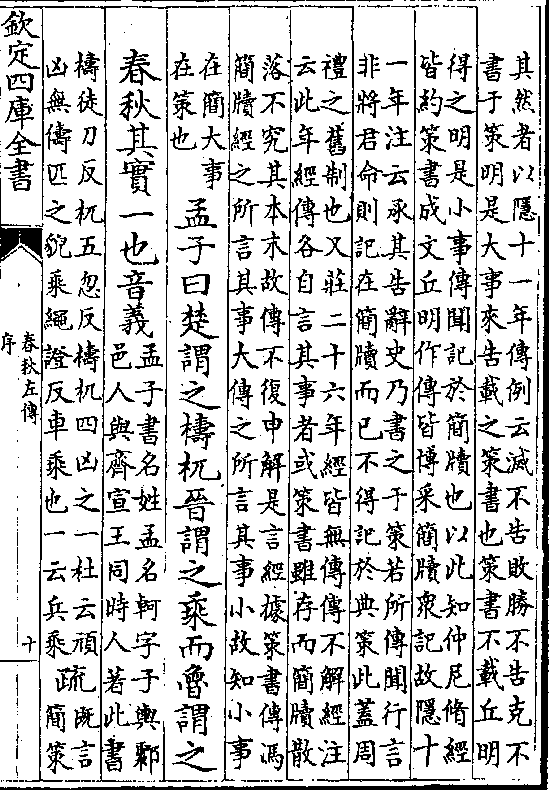 其然者以隱十一年傳例云滅不告敗勝不告克不
書于策明是大事來告載之策書也策書不載丘明
得之明是小事傳聞記於簡牘也以此知仲尼脩經
皆約策書成文丘明作傳皆博采簡牘衆記故隱十
一年注云承其告辭史乃書之于策若所傳聞行言
非將君命則記在簡牘而已不得記於典策此蓋周
禮之舊制也又莊二十六年經皆無傳傳不解經注
云此年經傳各自言其事者或策書雖存而簡牘散
落不究其本末故傳不復申解是言經據策書傳馮
簡牘經之所言其事大傳之所言其事小故知小事
在簡大事
在策也
孟子曰楚謂之檮杌晉謂之乘而魯謂之
春秋其實一也
音義
孟子書名姓孟名軻字子輿鄒
邑人與齊宣王同時人著此書
檮徒刀反杌五忽反檮杌四凶之一杜云頑
凶無儔匹之貌乘繩證反車乘也一云兵乘
疏
既言
簡策
欽定四庫全書
春秋左傳
序
十